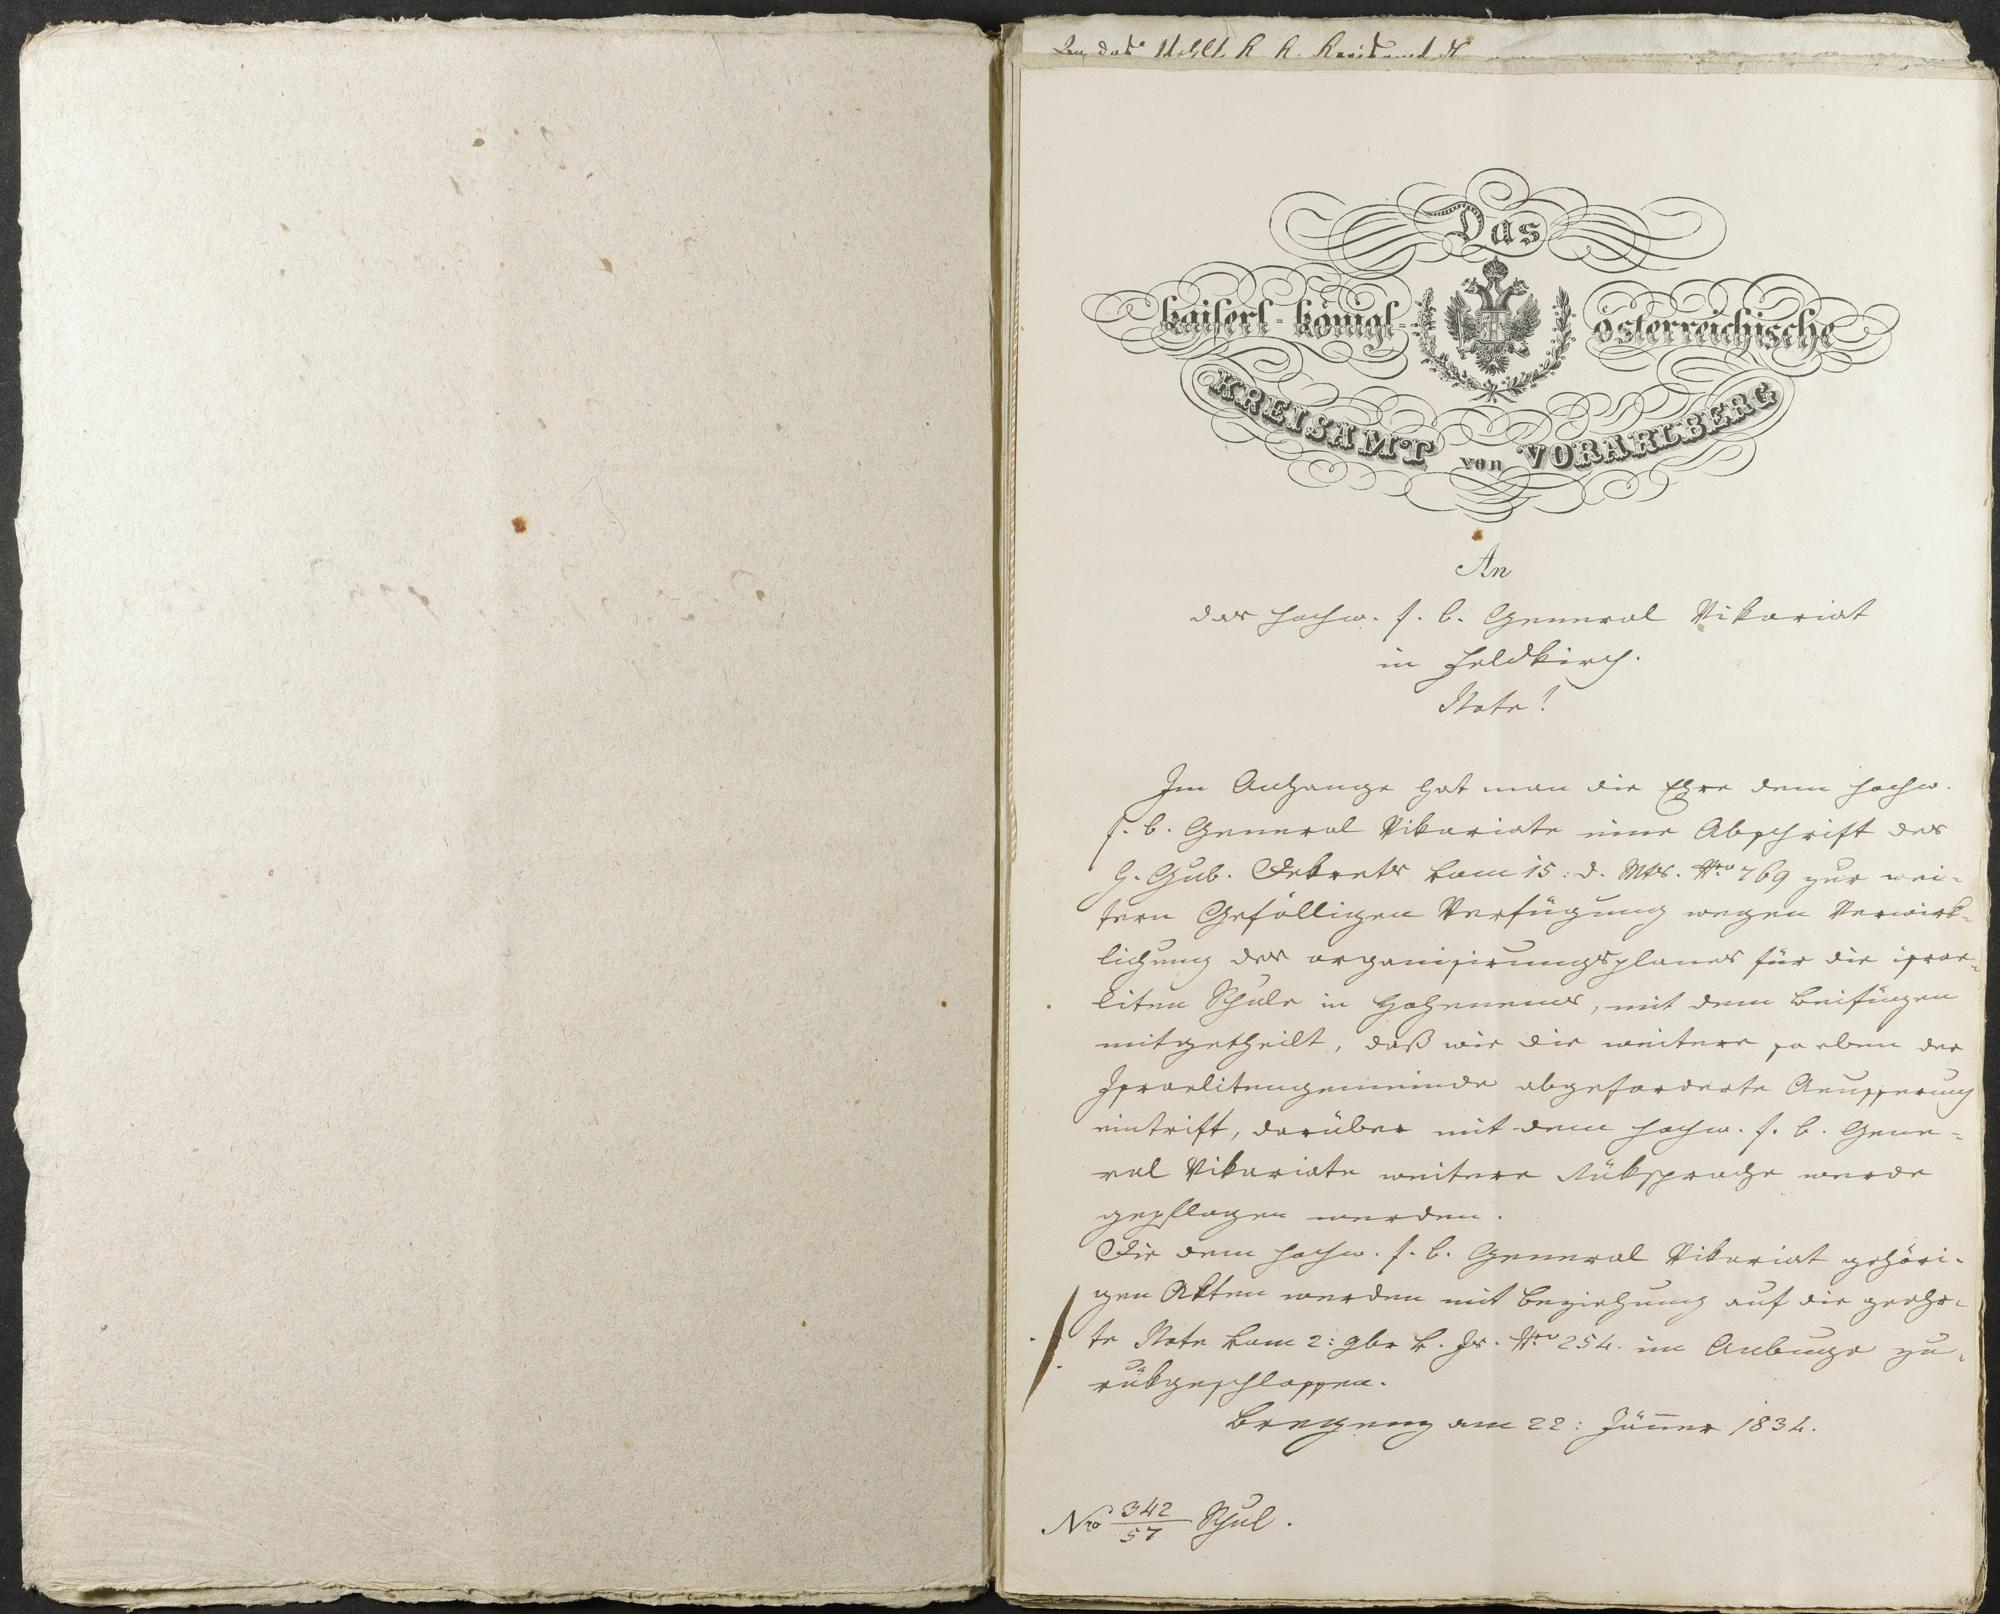 Das
kaiserl-königl-österreichische
KREISAMT von VORARLBERG
An
das hochw. f. b. General Vikariat
in Feldkirch.
Note!
Im Anhange hat man die Ehre dem hochw.
f. b. General Vikariate eine Abschrift des
h. Gub. Dekrets vom 15: d. Mts. Nro 769 zur wei-
tern Gefälligen Verfügung wegen Verwirk-
lichung des organisirungsplanes für die israe-
liten Schule in Hohenems, mit dem Beifügen
mitgetheilt, daß wie die weitere so eben der
Israelitengemeinde abgeforderte Aeusserung
eintrift, darüber mit dem hochw. f. b. Gene-
ral Vikariate weitere Rüksprache werde
gepflogen werden.
Die dem hochw. f. b. General Vikariat gehöri-
gen Akten werden mit Beziehung auf die geehr-
te Note vom 2: 9br v. Js. Nro 254 im Anbuge zu-
rükgeschlossen.
Bregenz am 22: Jänner 1834.
Nro 342/57 Schul.